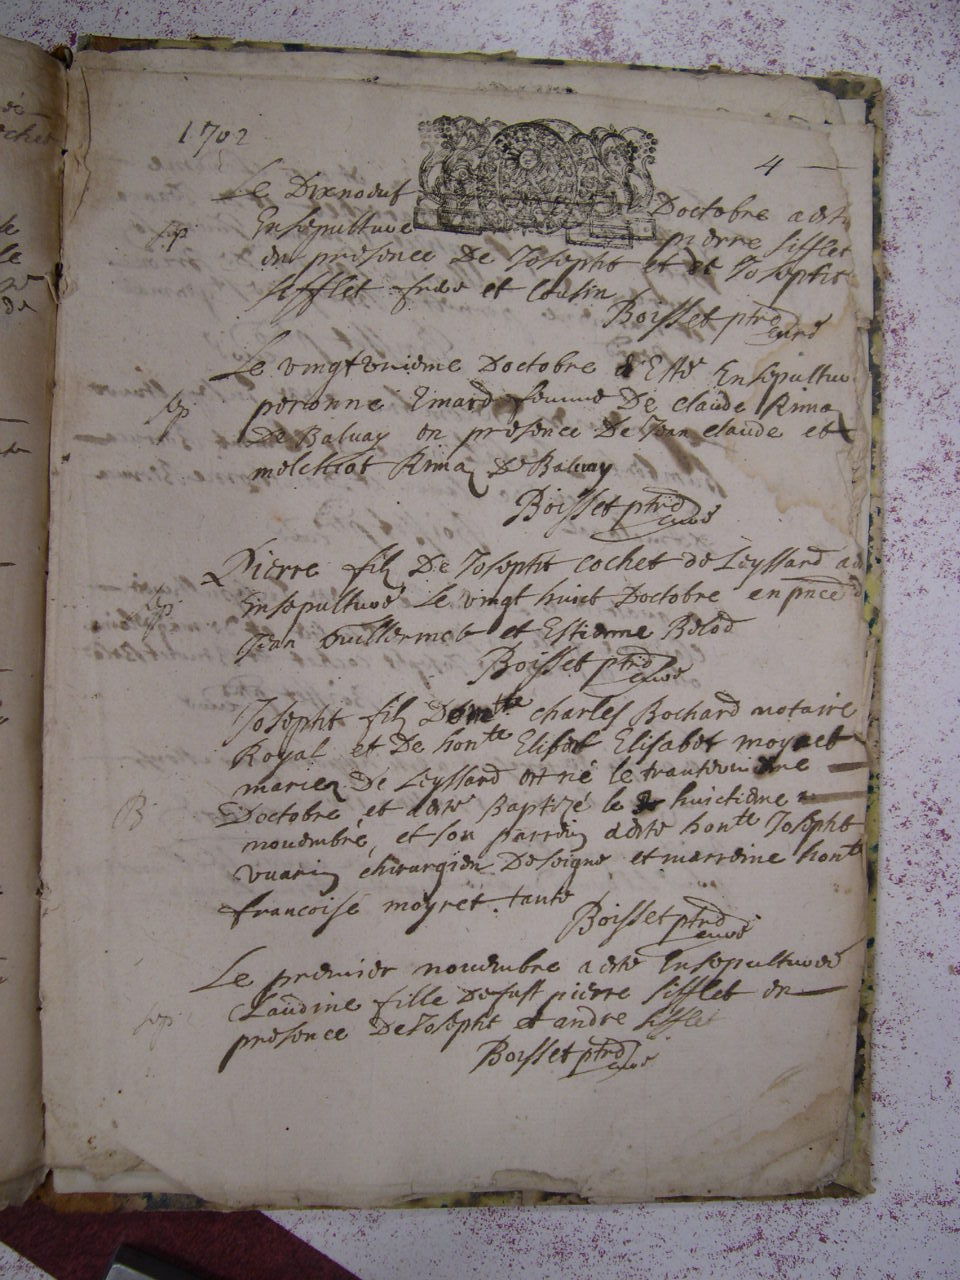 1702
4
Le Dixneouf Doctobre a este
sep
Ensepulture pierre sifflet
en presence De Josepht et de Josepht
sifflet frere et Cousin
Boisset ptre
curé
Le vingt unieme Doctobre a Esté Ensepultur
sep
peronne Emard femme De claude Rima
De Baluay en presence De Jean claude et
melchiot Rima De Baluay
Boisset ptre
curé
Pierre filz De Josepht Cochet de Leyssard a
sep
Ensepulturé Le vingt huict Doctobre en pnce
Jean Guillermet et Estienne Belod
Boisset ptre
curé
Josepht filz De charles Bochard notaire
Royal et De honte Elisabet moyret
mariez De Leyssard est né le trantunieme
B
Doctobre et a esté Baptizé le huictieme
nouembre, et son parrein a esté honte Josepht
vuarin chirurgien et marreine honte
francoise moyret tante
Boisset ptre
curé
Le premier nouembre a esté Ensepulturée
Claudine fille De fust pierre sifflet en
sep
presence De Josepht et andre sifflet
Boisset ptre
curé